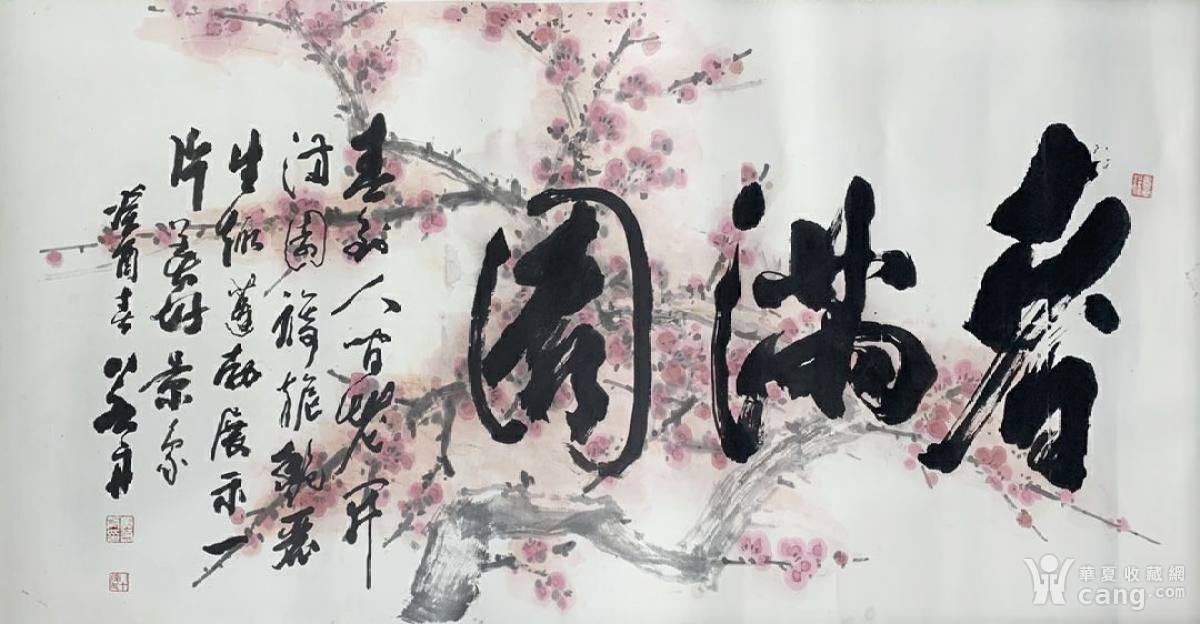 春满园
春到人间
满园旖旎艳丽
生机蓬勃展示一
片美好景象
癸酉春
華夏收藏網
cang.com